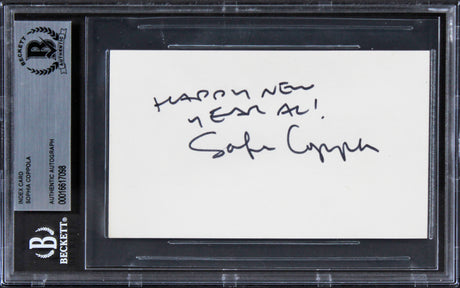 BECKETT
AUTHENTIC
INDEX CARD
SOPHIA COPPOLA
AUTHENTIC AUTOGRAPH
00016617098
BECKETT
HAPPY NEW
YEAR AL!
Sofia Coppola